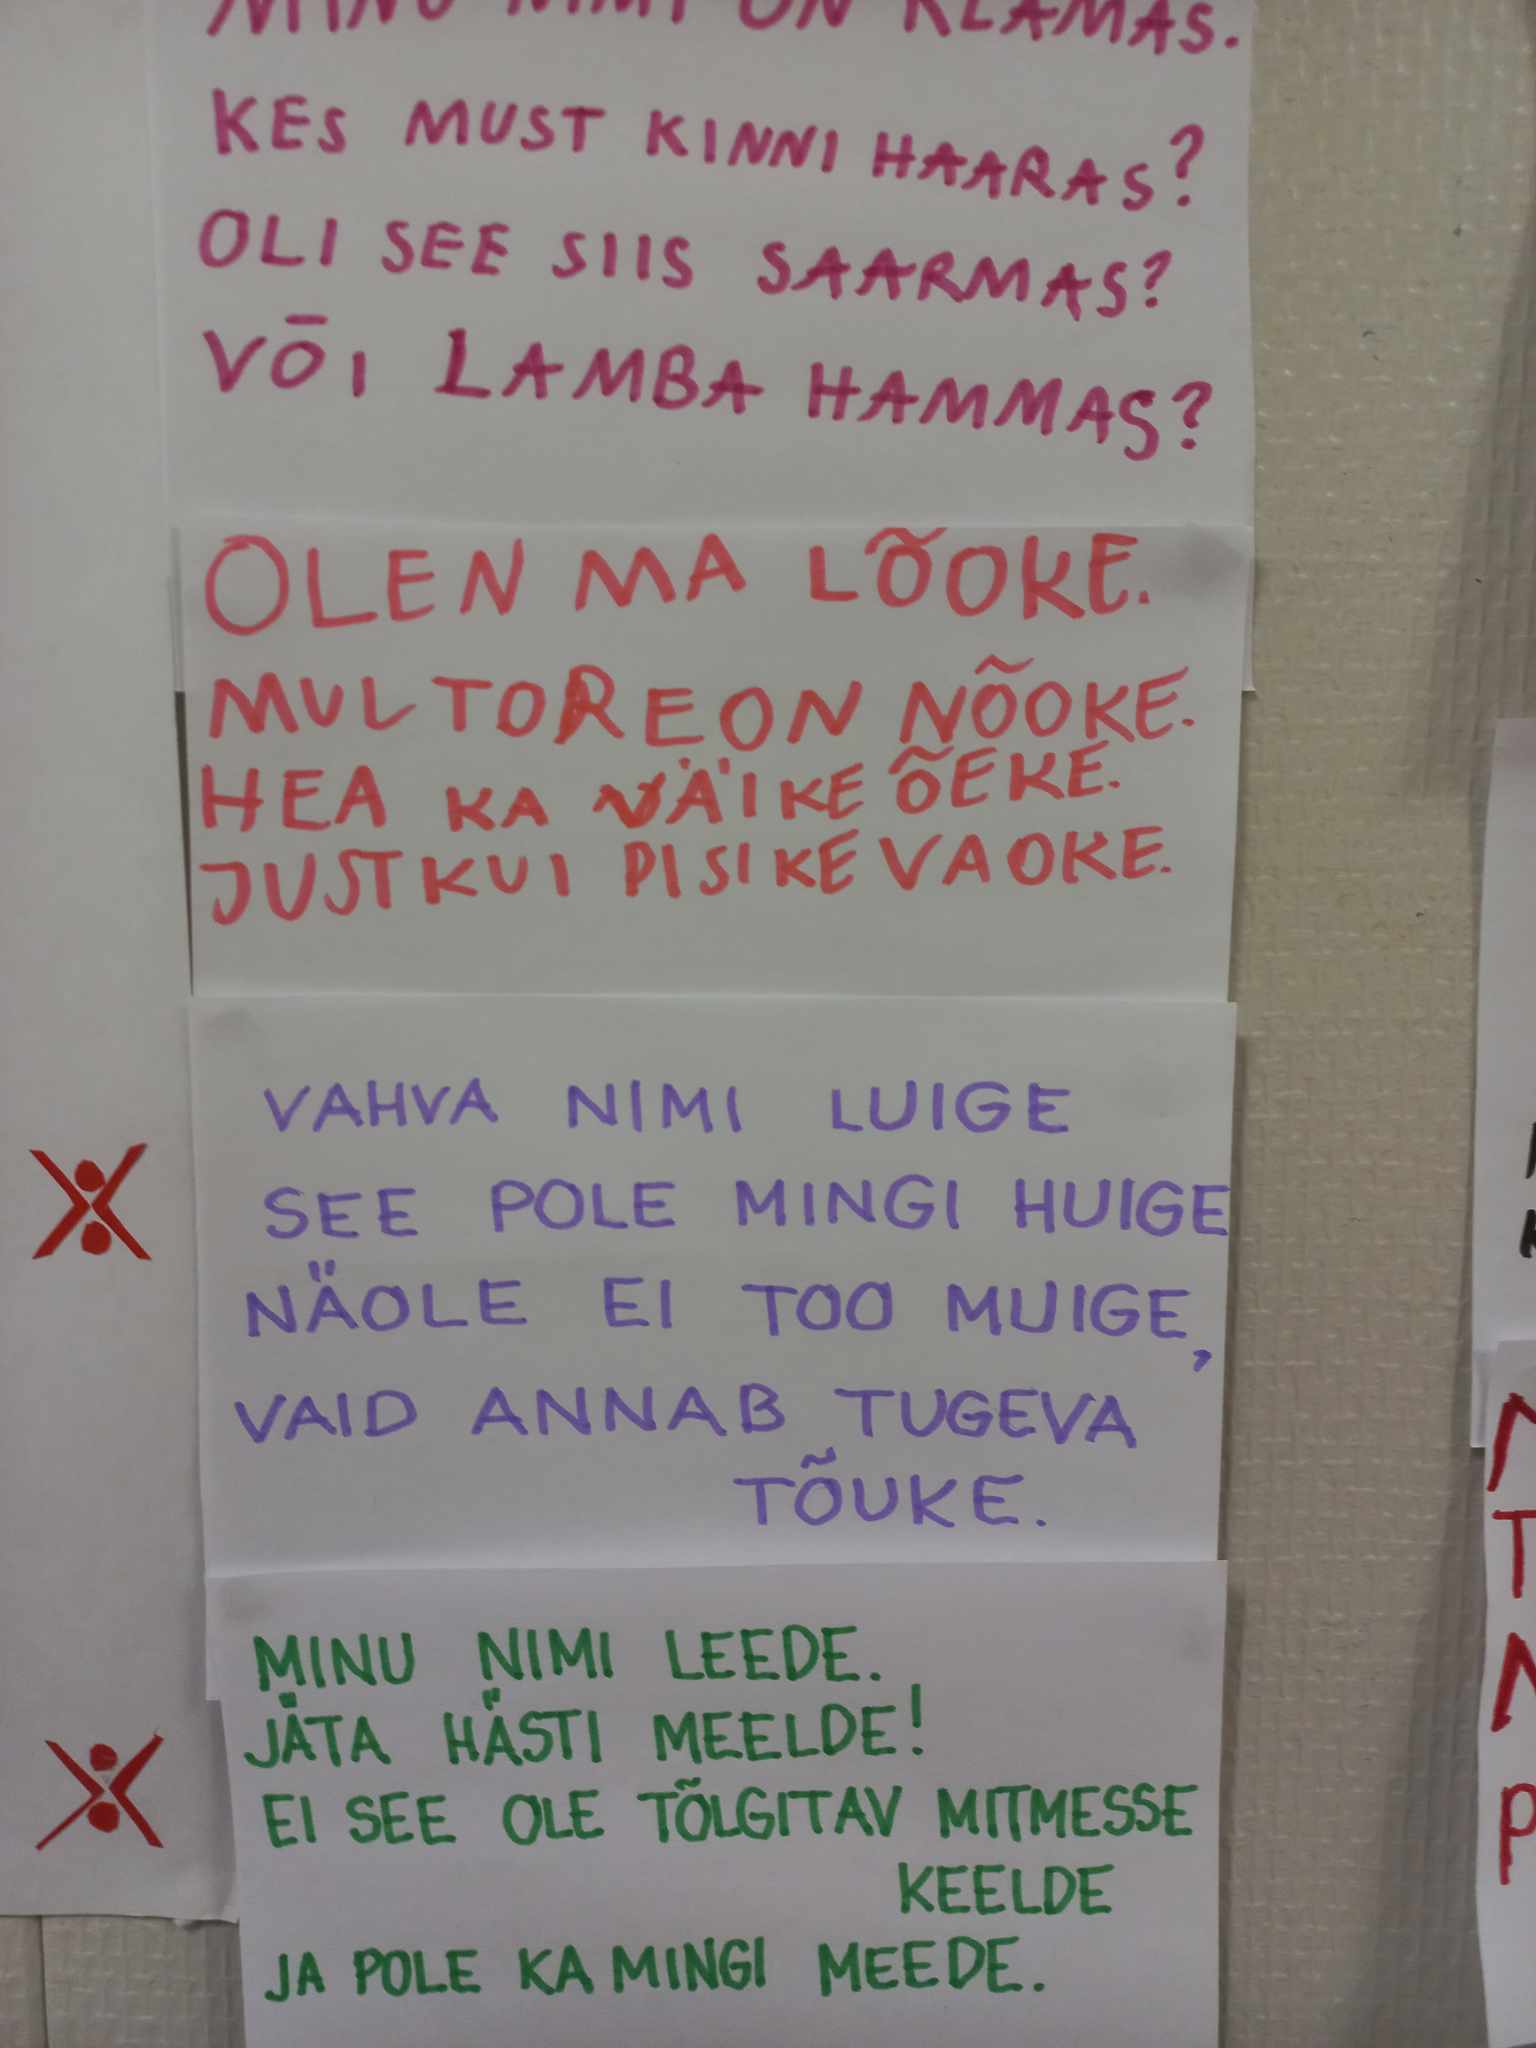 MINU NIMI ON KLAMAS.
KES MUST KINNI HAARAS?
OLI SEE SIIS SAARMAS?
VÕI LAMBA HAMMAS?
OLEN MA LÕOKE.
MUL TORE ON NÕOKE.
HEA KA VÄIKE ÕEKE.
JUSTKUI PISIKE VAOKE.
VAHVA NIMI LUIGE
SEE POLE MINGI HUIGE
NÄOLE EI TOO MUIGE,
VAID ANNAB TUGEVA
TÕUKE.
MINU NIMI LEEDE.
JÄTA HÄSTI MEELDE!
EI SEE OLE TÕLGITAV MITMESSE
KEELDE
JA POLE KA MINGI MEEDE.